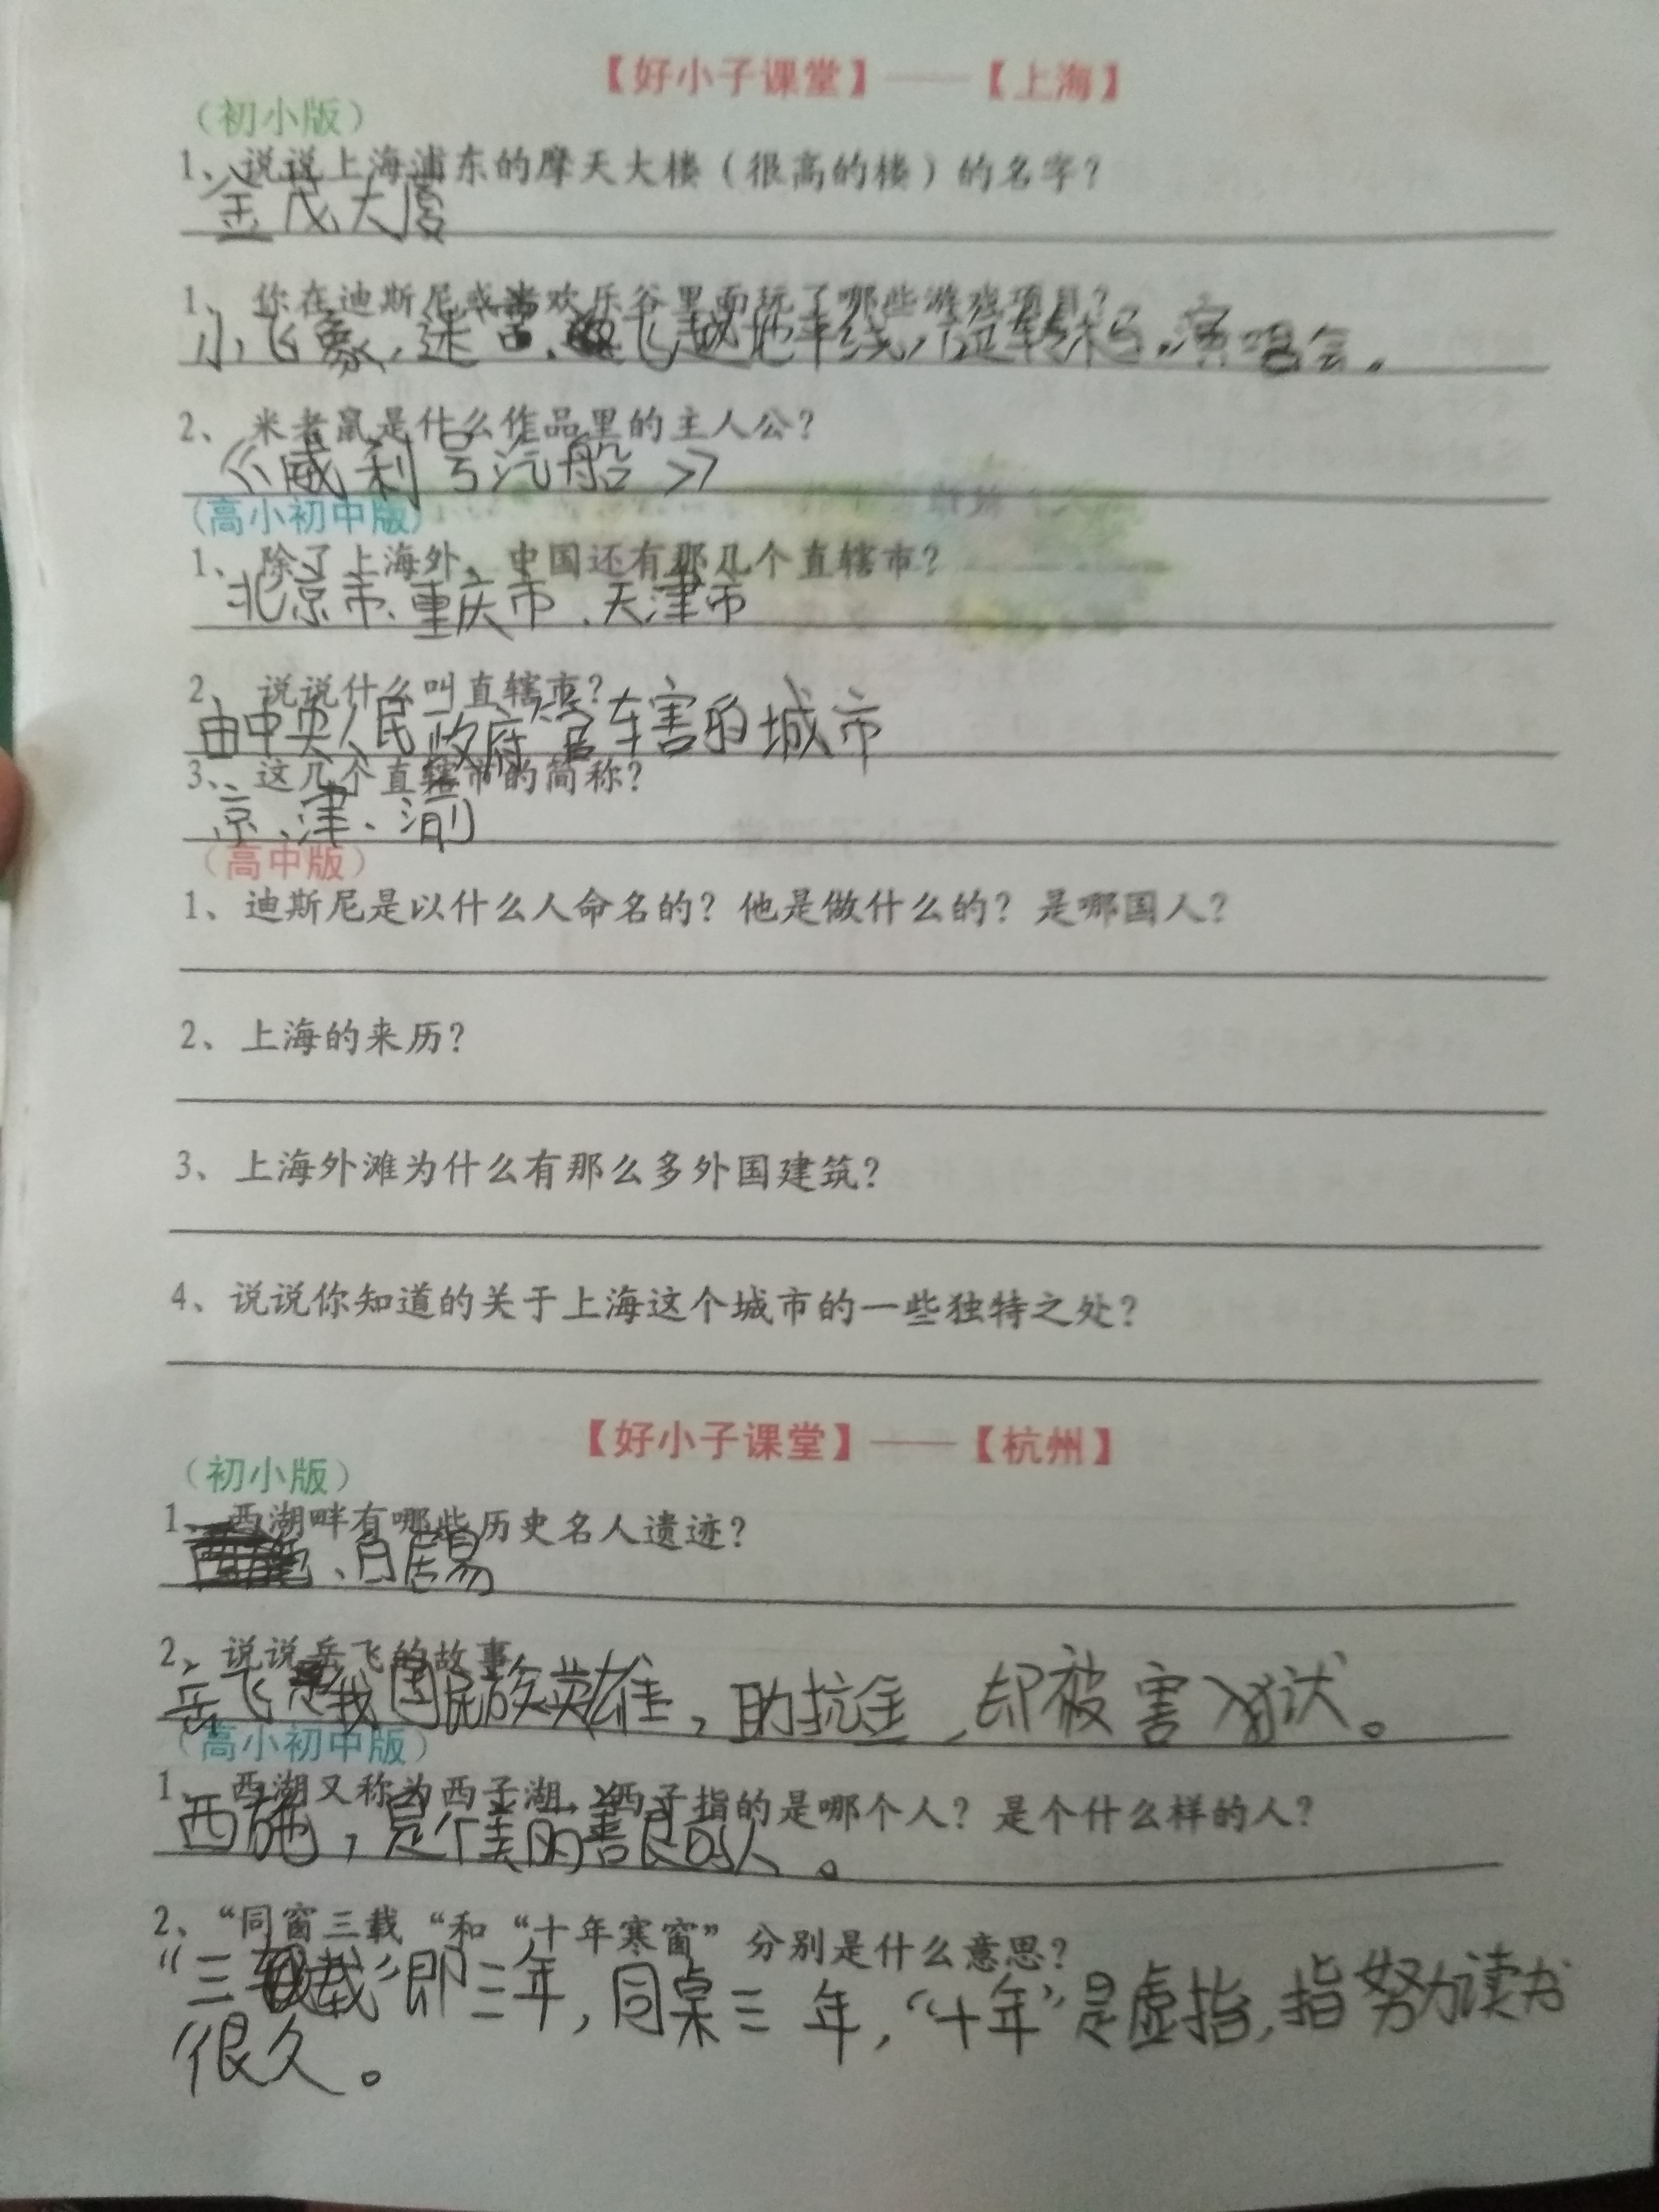 【好小子课堂】——【上海】
（初小版）
1、说说上海浦东的摩天大楼（很高的楼）的名字？
金茂大厦
1、你在迪斯尼或者欢乐谷里面玩了哪些游戏项目？
小飞象，迷宫、飞越地平线，旋转木马，演唱会。
2、米老鼠是什么作品里的主人公？
《威利号汽船》
（高小初中版）
1、除了上海外，中国还有那几个直辖市？
北京市、重庆市、天津市
2、说说什么叫直辖市？
由中央人民政府管辖的城市
3、这几个直辖市的简称？
京、津、渝
（高中版）
1、迪斯尼是以什么人命名的？他是做什么的？是哪国人？
2、上海的来历？
3、上海外滩为什么有那么多外国建筑？
4、说说你知道的关于上海这个城市的一些独特之处？
【好小子课堂】——【杭州】
（初小版）
1、西湖畔有哪些历史名人遗迹？
、白居易
2、说说岳飞的故事
岳飞是我国民族英雄，助抗金，却被害入狱。
（高小初中版）
1、西湖又称为西子湖，西子指的是哪个人？是个什么样的人？
西施，是个美丽善良的人。
2、“同窗三载“和“十年寒窗”分别是什么意思？
“三载”即三年，同桌三年，“十年”是虚指，指努力读书
很久。